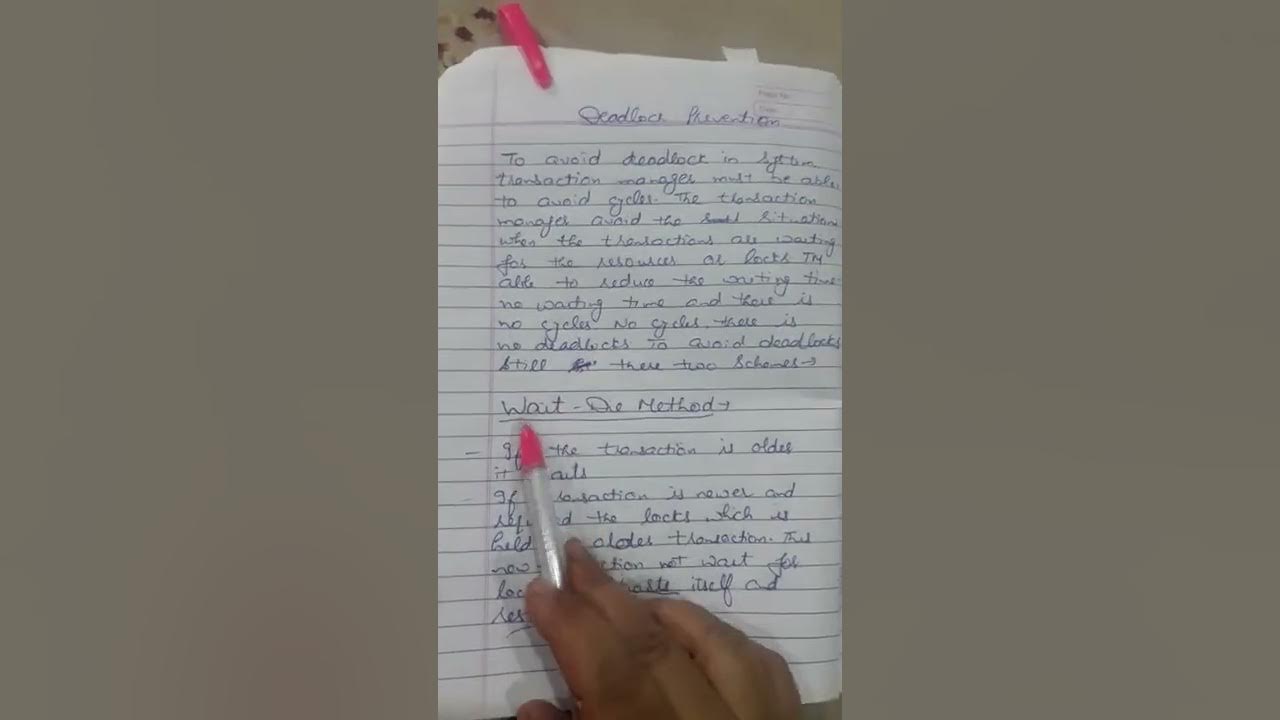 Deadlock Prevention
To avoid deadlock in system
transaction manager must be able
to avoid cycles. The transaction
manager avoid the situation
when the transactions are waiting
for the resources or locks TM
able to reduce the waiting time
no waiting time and there is
no cycles No cycles, there is
no deadlocks To avoid deadlocks
still there two schemes→
Wait-Die Method→
- If the transaction is older
it
- If is newer and
the locks which is
held older transaction. This
new not wait for
itself and